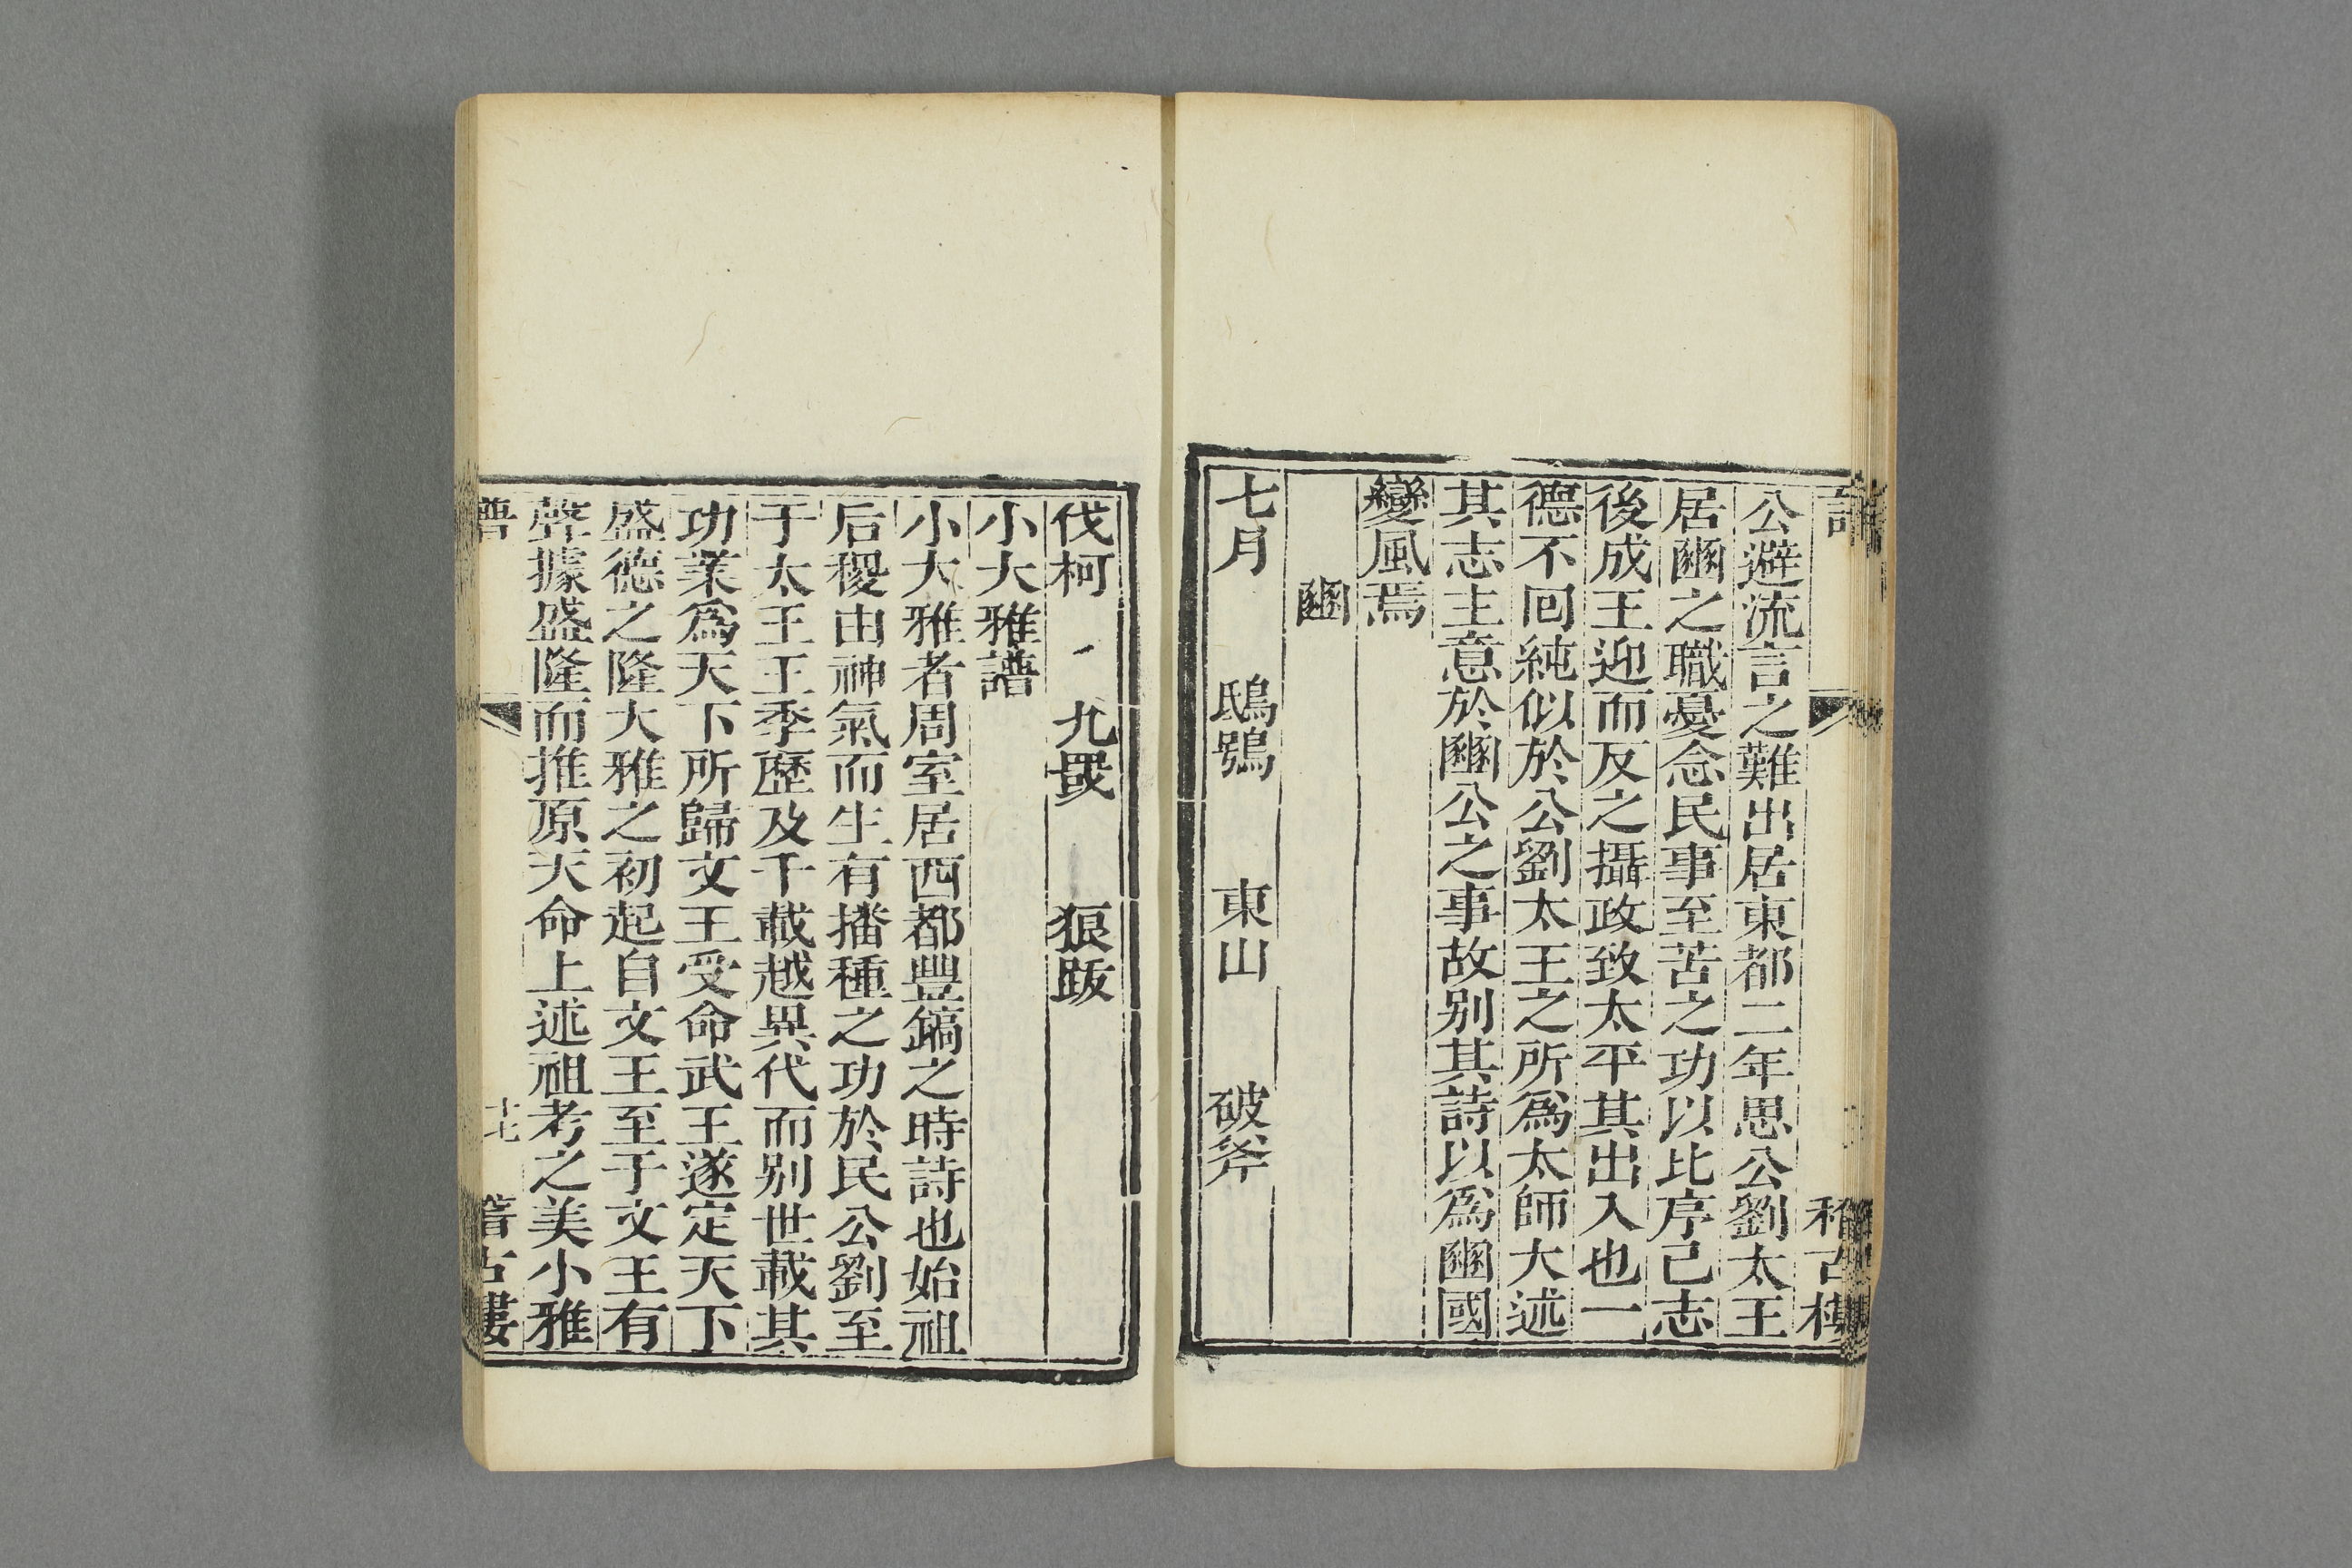 公避流言之難出居東都二年思公劉太王
居豳之職憂念民事至苦之功以比序己志
後成王迎而反之攝政致太平其出入也一
德不回純似於公劉太王之所爲太師大述
其志主意於豳公之事故别其詩以爲豳國
變風焉
豳
七月 鴟鴞 東山 破斧
伐柯 九罭 狼跋
小大雅譜
小大雅者周室居西都豐鎬之時詩也始祖
后稷由神氣而生有播種之功於民公劉至
于太王王季歷及千載越異代而别世載其
功業爲天下所歸文王受命武王遂定天下
盛德之隆大雅之初起自文王至于文王有
聲據盛隆而推原天命上述祖考之美小雅
譜 十七 稽古樓